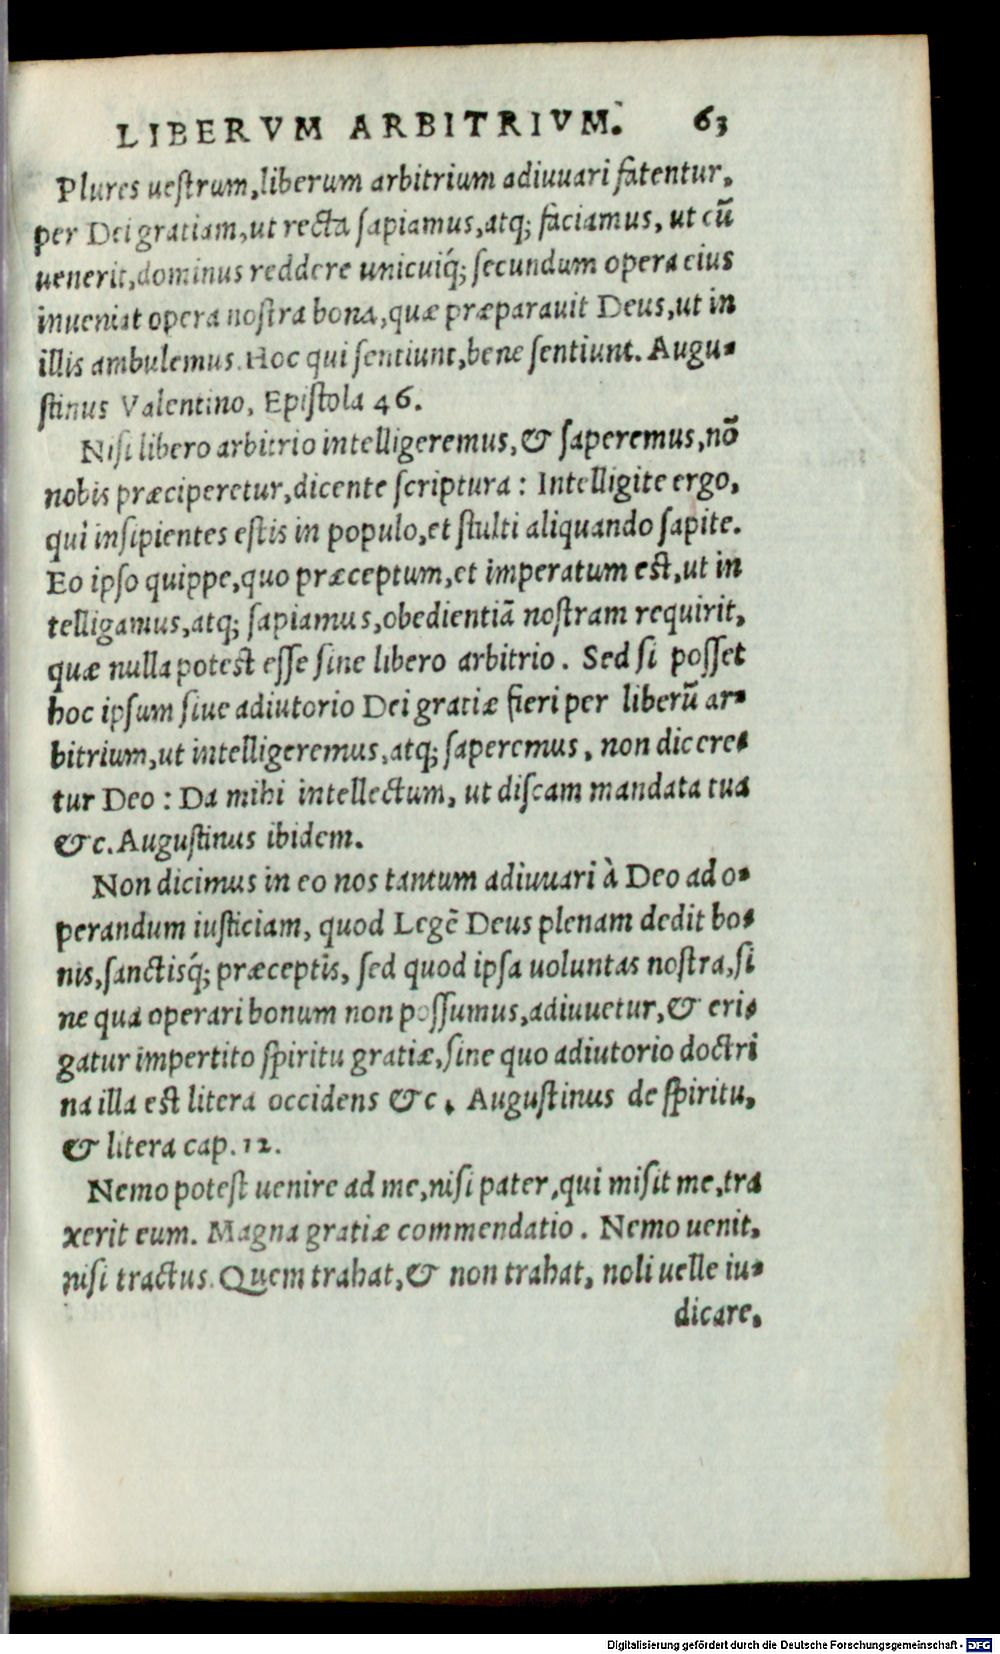 LIBERVM ARBITRIVM. 63
Plures uestrum, liberum arbitrium adiuuari fatentur,
per Dei gratiam, ut recta sapiamus, atq; faciamus, ut cū
uenerit, dominus reddere unicuiq́; secundum opera eius
inueniat opera nostra bona, quæ præparauit Deus, ut in
illis ambulemus. Hoc qui sentiunt, bene sentiunt. Augu-
stinus Valentino, Epistola 46.
Nisi libero arbitrio intelligeremus, & saperemus, nō
nobis præciperetur, dicente scriptura: Intelligite ergo,
qui insipientes estis in populo, et stulti aliquando sapite.
Eo ipso quippe, quo præceptum, et imperatum est, ut in
telligamus, atq; sapiamus, obedientiā nostram requirit,
quæ nulla potest esse sine libero arbitrio. Sed si posset
hoc ipsum siue adiutorio Dei gratiæ fieri per liberū ar-
bitrium, ut intelligeremus, atq; saperemus, non dicere-
tur Deo: Da mihi intellectum, ut discam mandata tua
&c. Augustinus ibidem.
Non dicimus in eo nos tantum adiuuari à Deo ad o-
perandum iusticiam, quod Legē Deus plenam dedit bo-
nis, sanctisq́; præceptis, sed quod ipsa uoluntas nostra, si
ne qua operari bonum non possumus, adiuuetur, & eri-
gatur impertito spiritu gratiæ, sine quo adiutorio doctri
na illa est litera occidens &c. Augustinus de spiritu,
& litera cap. 12.
Nemo potest uenire ad me, nisi pater, qui misit me, tra
xerit eum. Magna gratiæ commendatio. Nemo uenit,
nisi tractus. Quem trahat, & non trahat, noli uelle iu-
dicare,
Digitalisierung gefördert durch die Deutsche Forschungsgemeinschaft - DFG